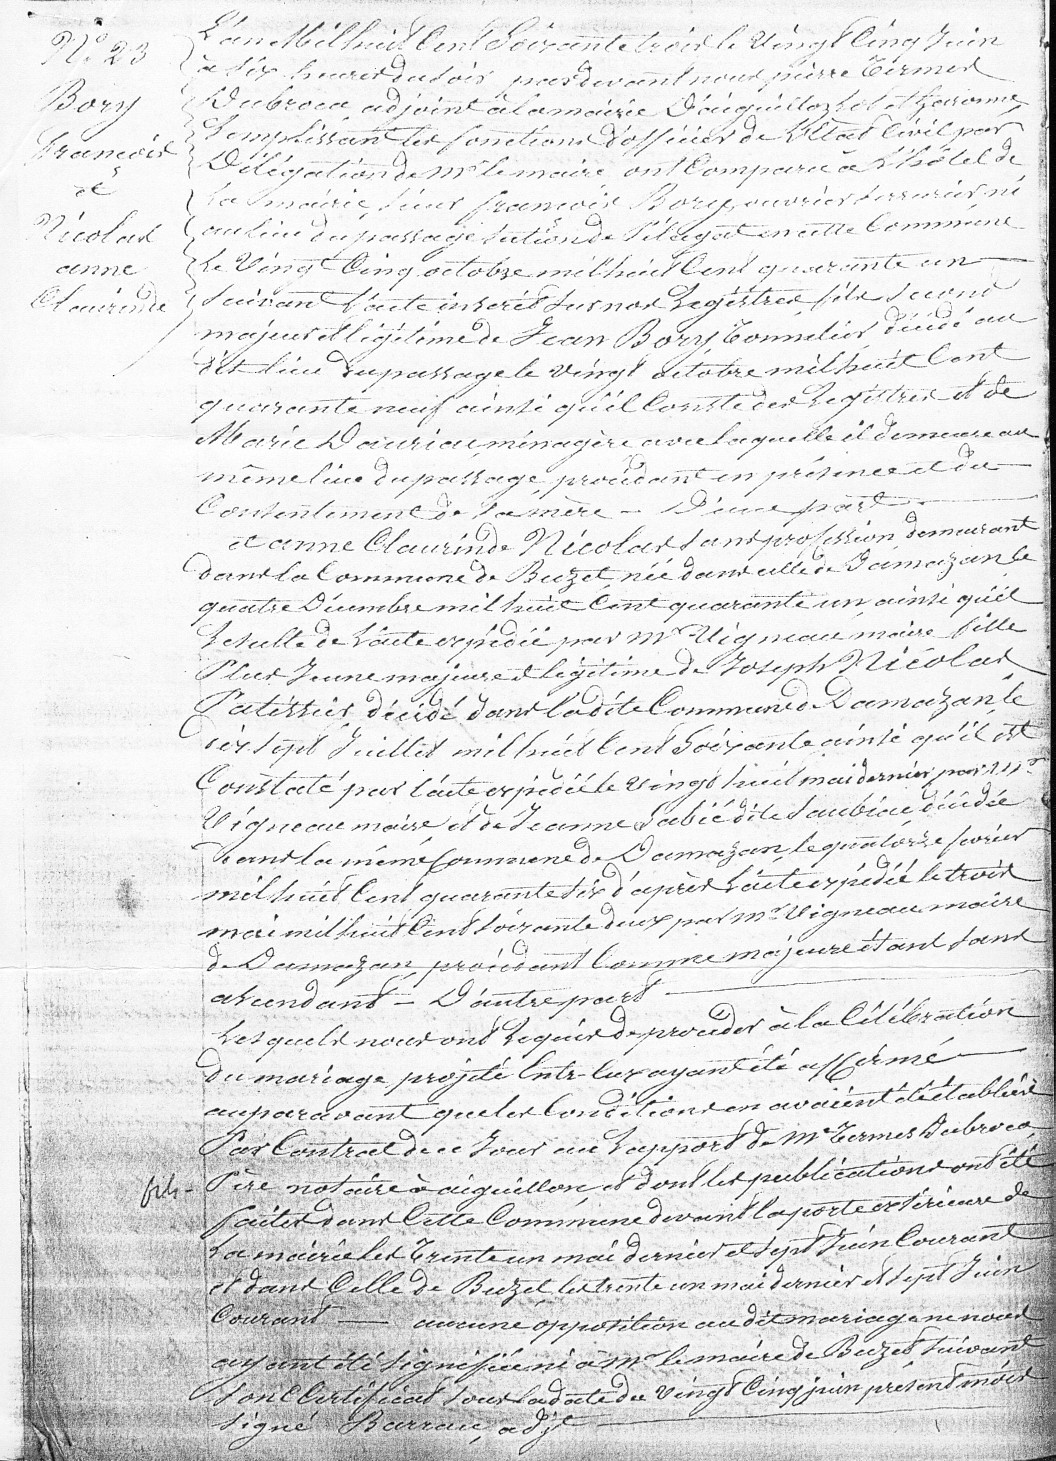 N.° 23
Bory
François
et
Nicolas
anne
Claurinde
L'an Mil huit Cent Soixante trois le Vingt Cinq Juin
à six heures du soir, pardevant nous pierre Termes
Dubroca adjoint à la mairie D'aiguillon Lot et Garonne,
Remplissant les fonctions d'officier de L'Etat Civil par
Délégation de Mr le maire, ont Comparu à L'hôtel de
La mairie, sieur françois Bory, ouvrier serrurier né
au lieu du passage section de Pélagat en cette Commune
Le Vingt Cinq octobre mil huit Cent quarante un
suivant L'acte inscrit sur nos Registres fils second
majeur et légitime de Jean Bory Tonnelier décédé au
dit lieu du passage le vingt octobre mil huit Cent
quarante neuf ainsi qu'il Conste des Registres et de
Marie Dauriac ménagère avec laquelle il demeure au
même lieu du passage, procédant en présence et du
Consentement de sa mère — D'une part
et anne Claurinde Nicolas sans profession demeurant
dans la Commune de Buzet, née dans celle de Damazan le
quatre Décembre mil huit Cent quarante un, ainsi qu'il
Resulte de L'acte expédié par Mr Vigneau, maire, fille
Plus Jeune majeure et légitime de Joseph Nicolas
Patissier, décédé dans la dite Commune de Damazan le
dix sept Juillet mil huit Cent Soixante ainsi qu'il est
Constaté par l'acte expédié le vingt huit mai dernier, par Mr
Vigneau maire et de Jeanne Labié dite Saubiac décédée
dans la même Commune de Damazan, le quatorze février
mil huit Cent quarante six d'après L'acte expédié le trois
mai mil huit Cent soixante deux par Mr Vigneau maire
de Damazan, procédant Comme majeure étant sans
ascendants — D'autre part
Les quels nous ont Requis de procéder à la Célébration
du mariage projeté Entr'Eux ayant été affirmé
auparavant que les Conditions en avaient été établies
Par Contrat de ce Jour au Rapport de Me Termes Dubroca
Père notaire à aiguillon et dont les publications ont été
faites dans Cette Commune devant la porte extérieure de
La mairie les Trente un mai dernier et sept Juin Courant
et dans Celle de Buzet les trente un mai dernier et sept Juin
Courant — aucune opposition au dit mariage ne nous
ayant été signifiée ni à Mr le maire de Buzet suivant
son Certificat sous la date du vingt Cinq juin présent mois
signé Barrau, adjt